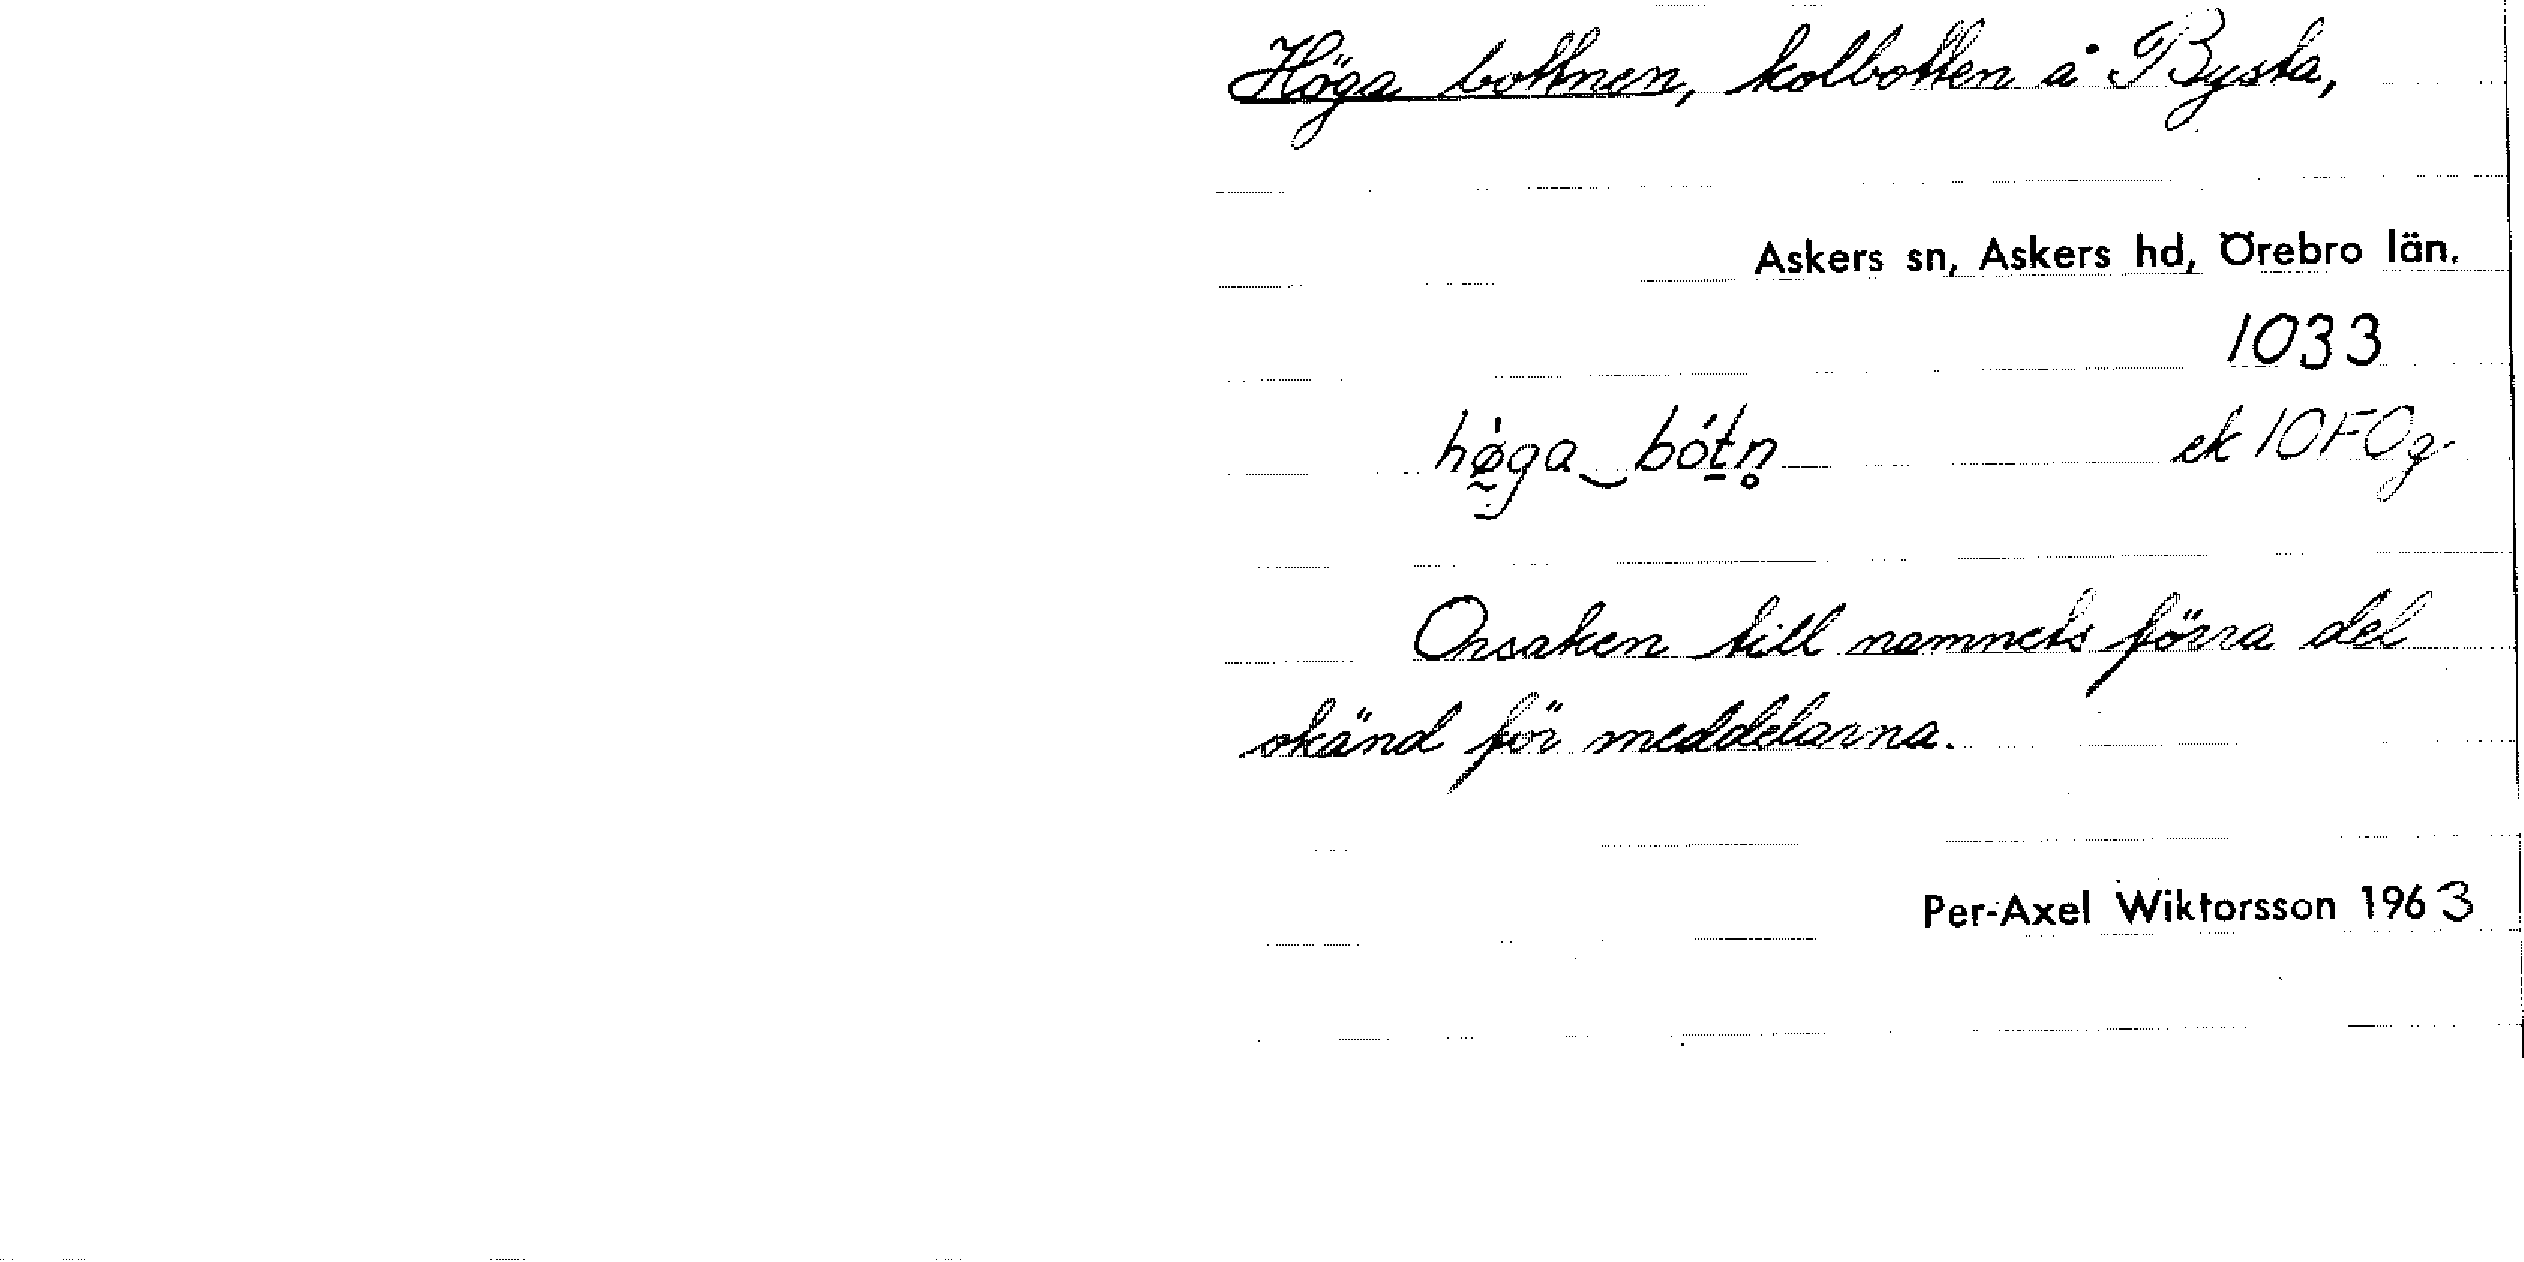 Höga bottnen, kolbotten å Bysta,
Askers sn, Askers hd, Örebro län.
1033
hǿ̰ga‿bót̲n̥ ek 10F0g
Orsaken till namnets förra del
okänd för meddelarna.
Per-Axel Wiktorsson 1963